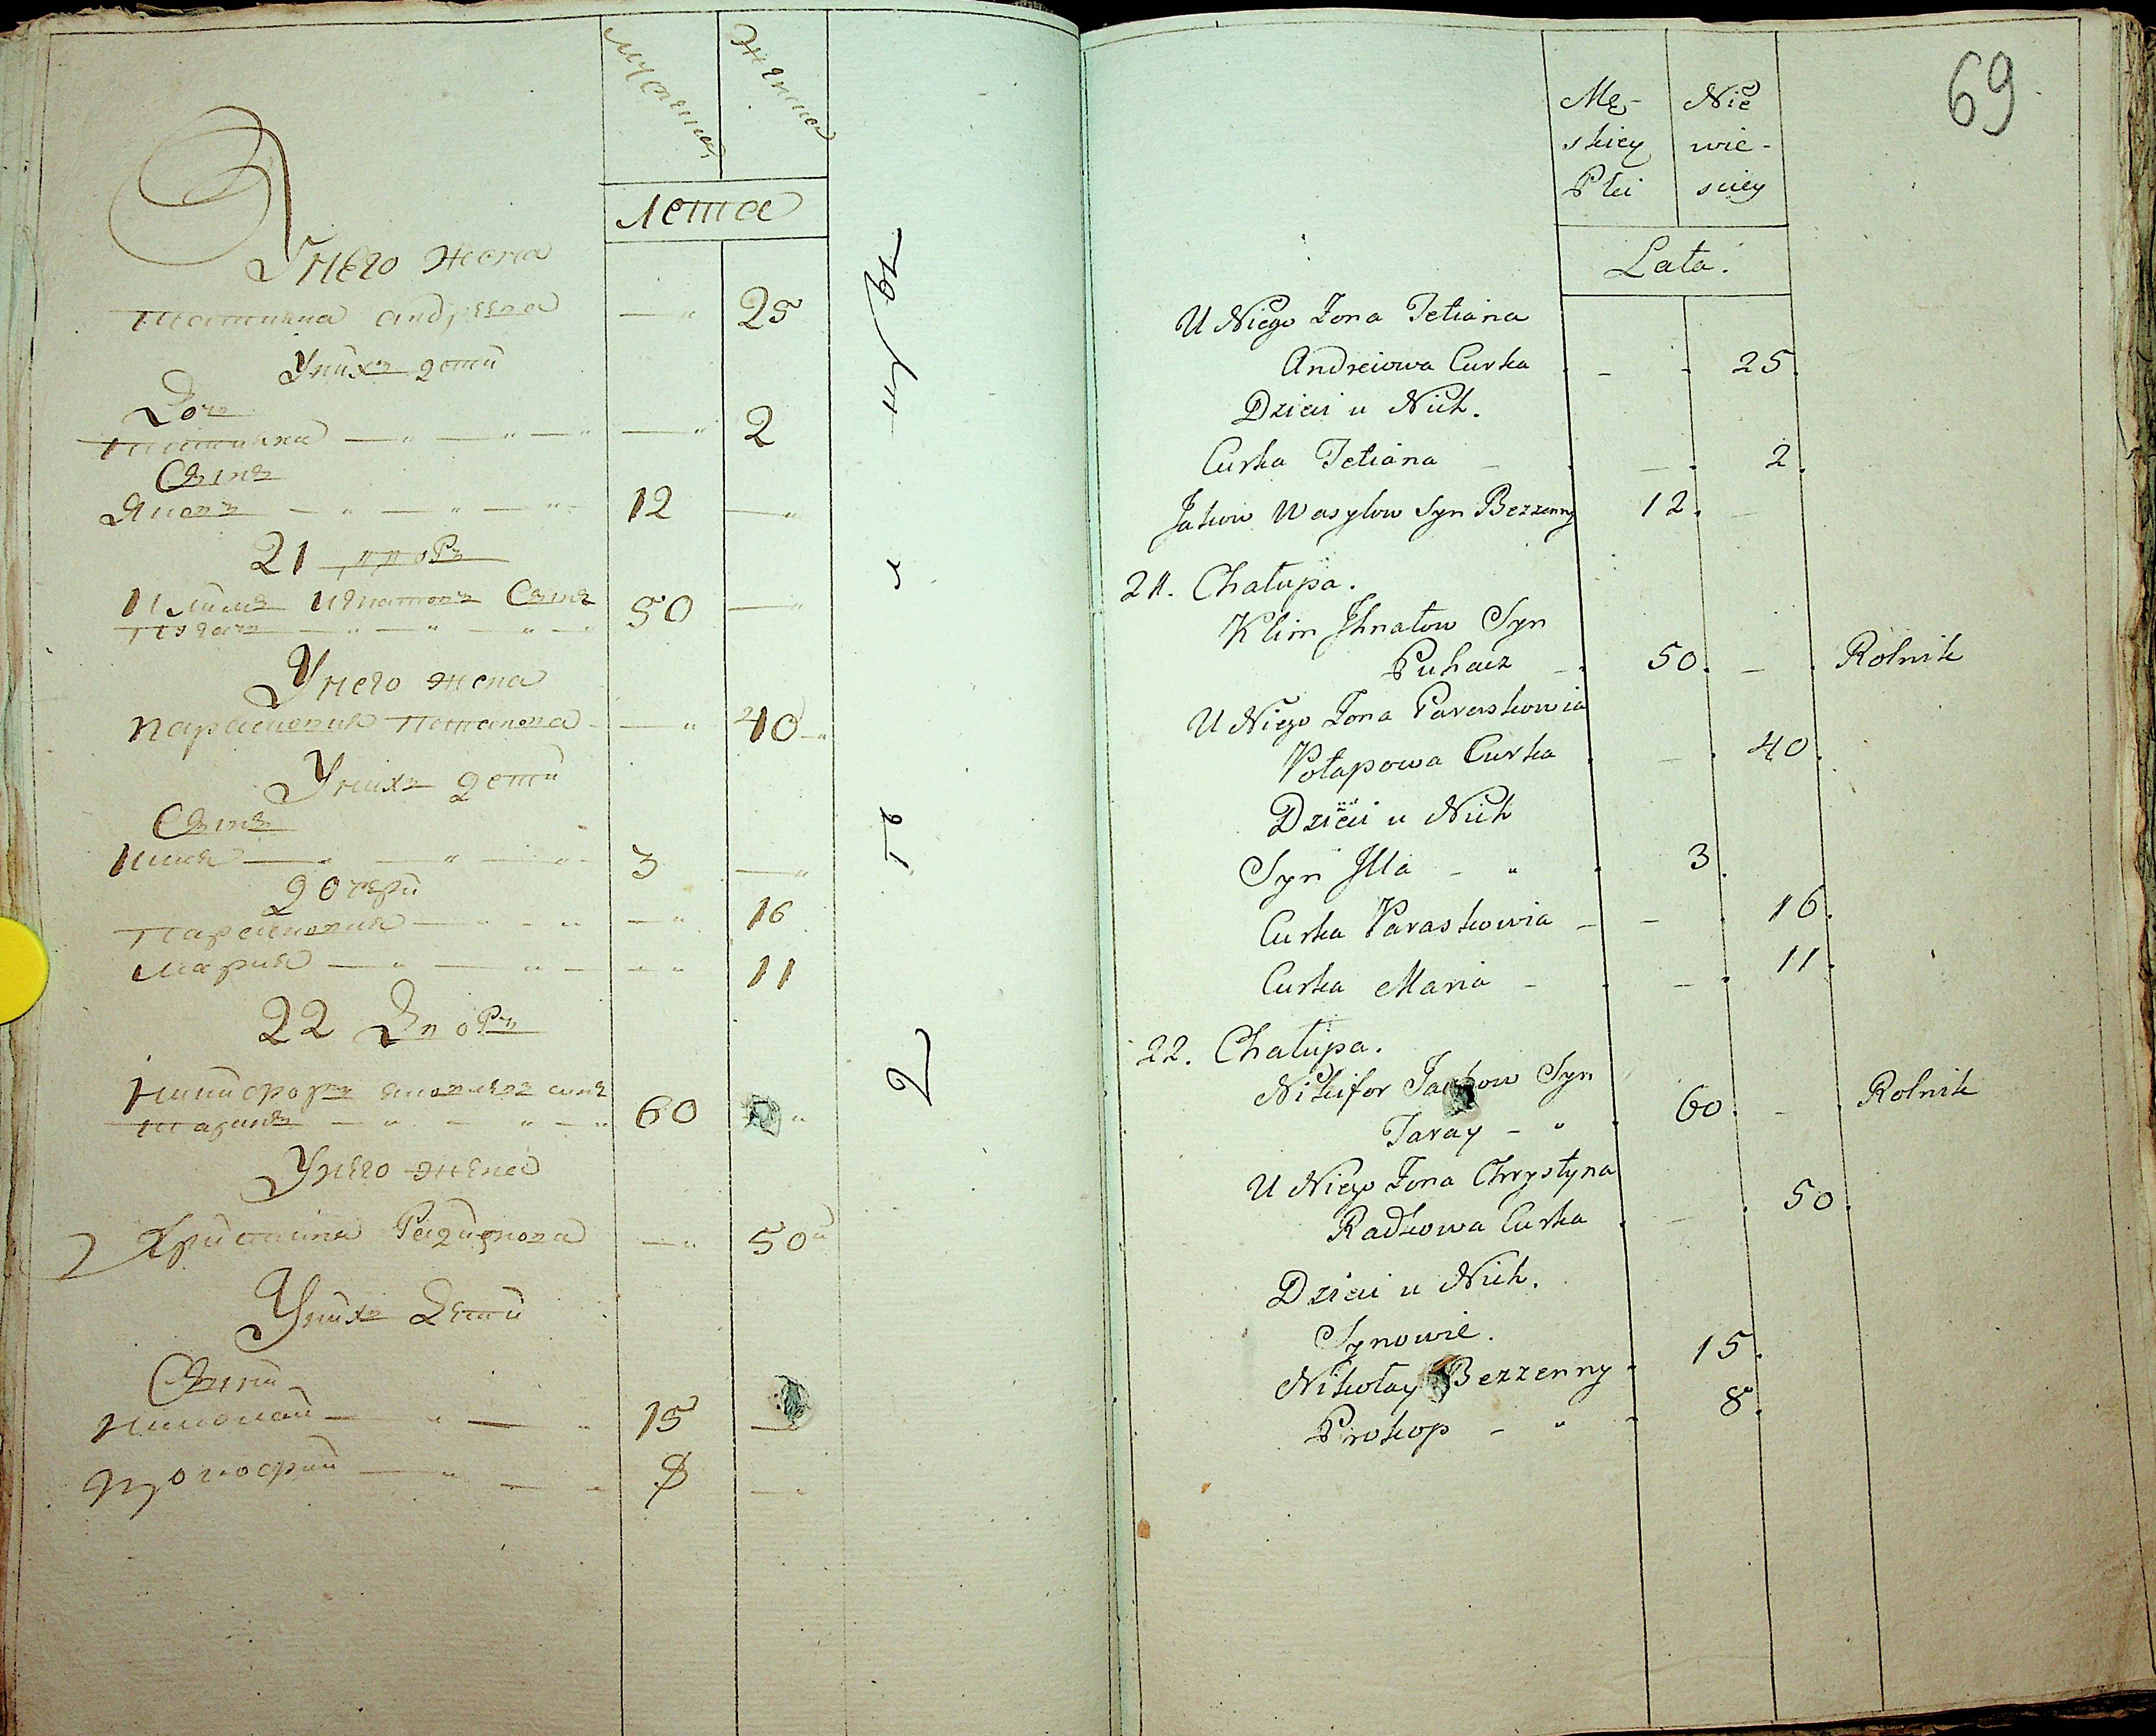 Мужеска Женска
Лета
У него жена
Татияна Андреева — 25
У них дети
Доч
Татияна — 2
Сынъ
Яковъ 12 —
21 дворъ
Климъ Игнатовъ Сынъ
Пугачъ 50 —
У него жена
Парасковия Потапова — 40
У них дети
Сынъ
Илия 3 —
дочери
Парасковия — 16
Мария — 11
22 Дворъ
Никифоръ сынъ
60
У него жена
Христина — 50
У них Дети
Сыны
Николай 15 —
8 —
69
Mę- Nie
skiey wie-
Płci sciey
Lata.
U Niego Zona Tetiana
Andreiowa Curka - 25.
Dzieci u Nich.
Curka Tetiana - 2.
Jakow Wasylow Syn Bezzenny 12. -
21. Chałupa.
Klim Ihnatow Syn
Puhacz - 50. - Rolnik
U Niego Zona Paraskowia
Potapowa Curka - 40.
Dzieci u Nich
Syn Illa - " 3.
Curka Paraskowia - - 16.
Curka Maria - - 11.
22. Chałupa.
Nikifor Syn
Taray - " 60. - Rolnik
U Niego Zona Chrystyna
Radkowa Curka - 50.
Dzieci u Nich.
Synowie.
Nikołay Bezzenny 15.
Prokop - " 8.